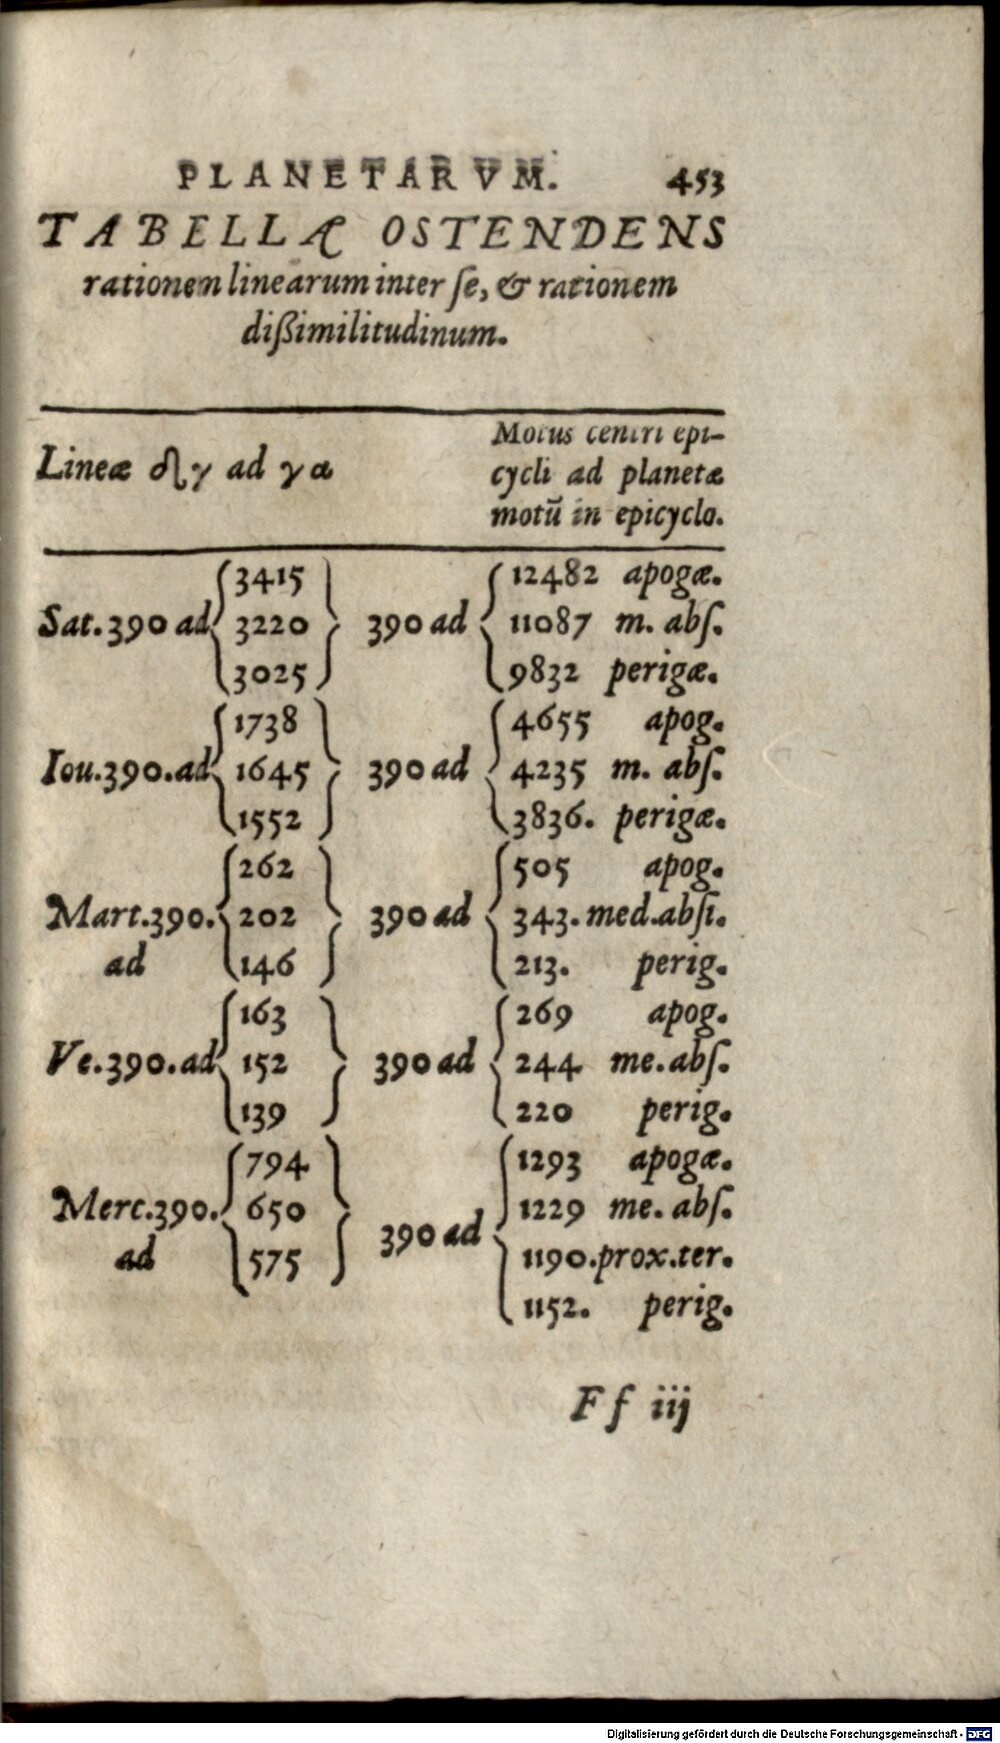 PLANETARVM. 453
TABELLÆ OSTENDENS
rationem linearum inter ſe, & rationem
dißimilitudinum.
Lineæ δ γ ad γ α
Motus centri epi-
cycli ad planetæ
motū in epicyclo.
3415 12482 apogæ.
Sat. 390 ad 3220 390 ad 11087 m. abſ.
3025 9832 perigæ.
1738 4655 apog.
Iou. 390. ad 1645 390 ad 4235 m. abſ.
1552 3836. perigæ.
262 505 apog.
Mart. 390. 202 390 ad 343. med. abſi.
ad 146 213. perig.
163 269 apog.
Ve. 390. ad 152 390 ad 244 me. abſ.
139 220 perig.
794 1293 apogæ.
Merc. 390. 650 390 ad 1229 me. abſ.
ad 575 1190. prox. ter.
1152. perig.
Ff iij
Digitalisierung gefördert durch die Deutsche Forschungsgemeinschaft - DFG